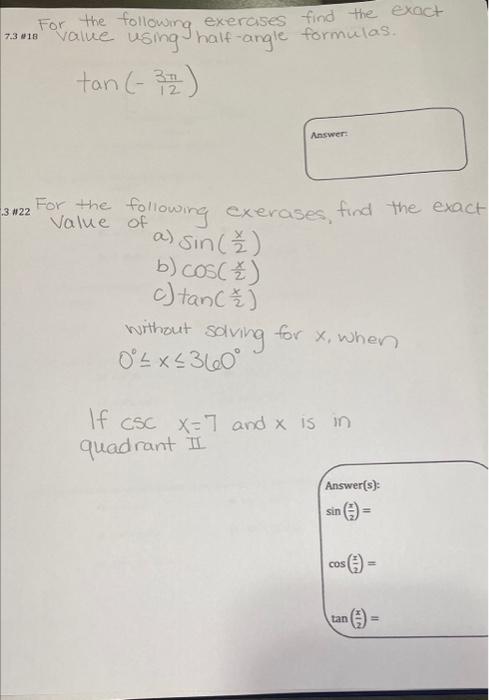 For the following exercises find the exact
7.3 #18 value using half-angle formulas.
tan(-3π/12)
Answer:
.3 #22 For the following exercises, find the exact
Value of
a) sin(x/2)
b) cos(x/2)
c) tan(x/2)
without solving for x, when
0°≤x≤360°
If csc x=7 and x is in
quadrant II
Answer(s):
sin(x/2)=
cos(x/2)=
tan(x/2)=